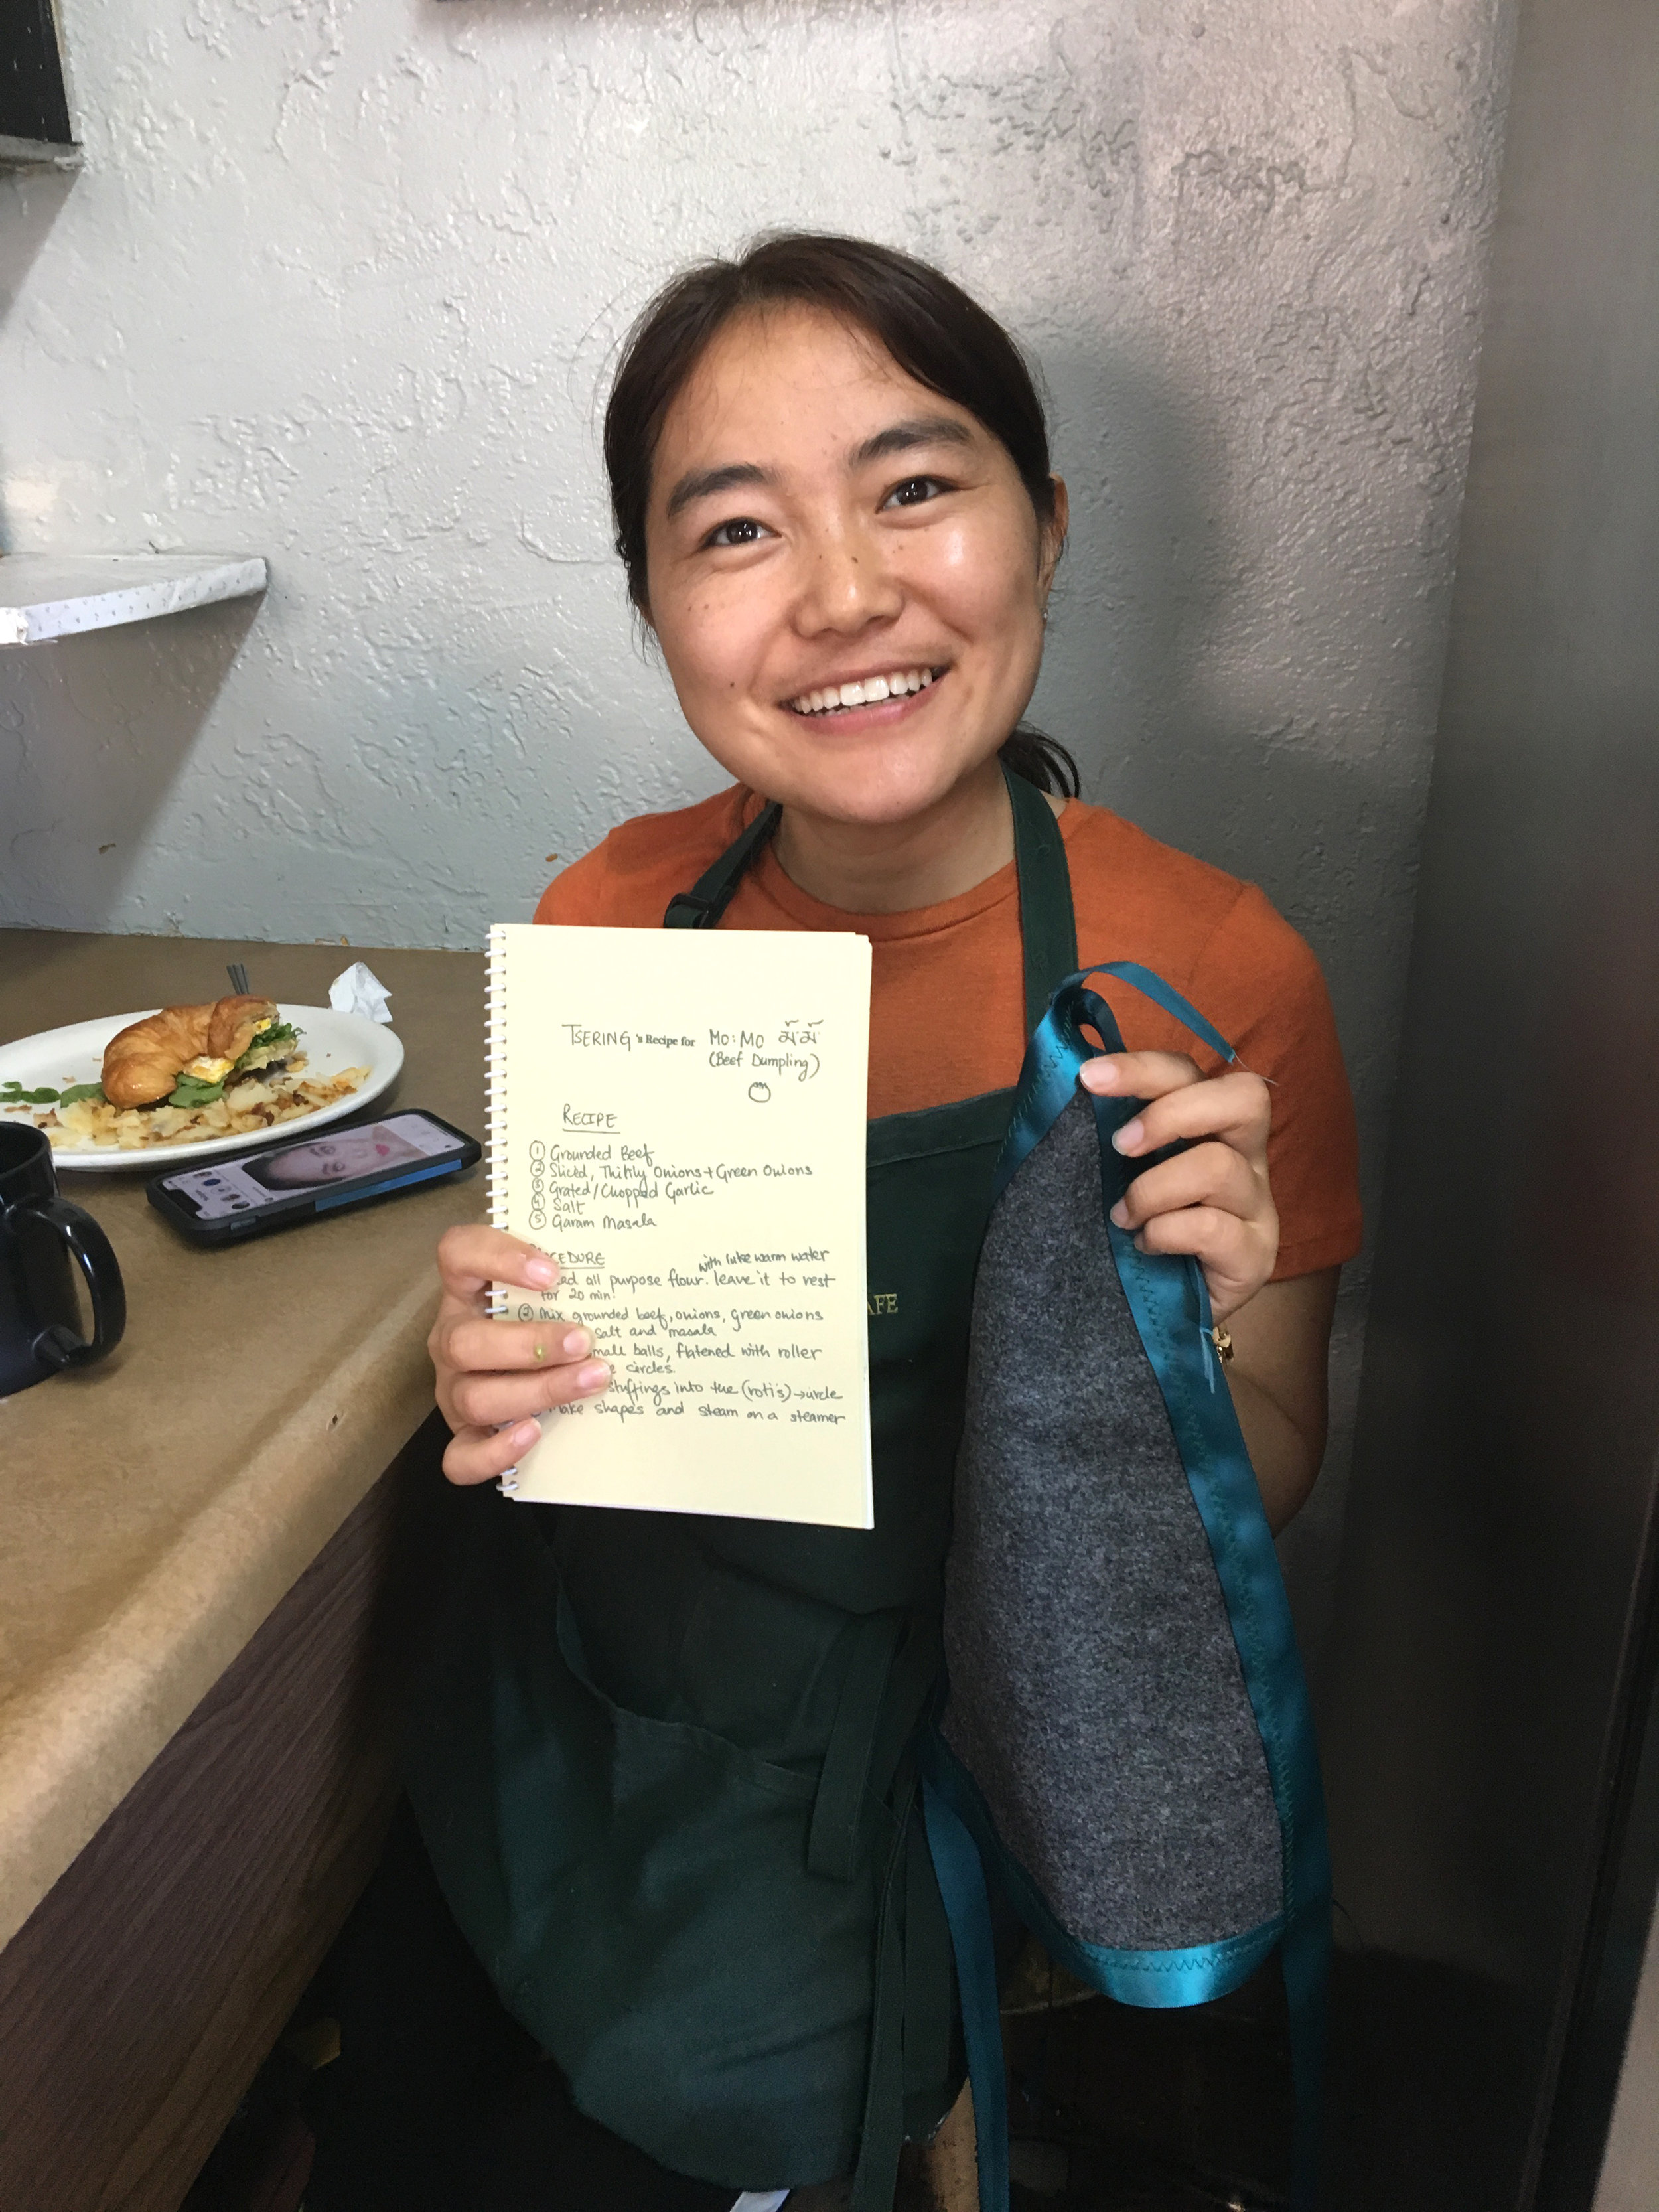 TSERING 's Recipe for MO:MO མོ་མོ་
(Beef Dumpling)
RECIPE
① Grounded Beef
② Sliced, Thinly Onions + Green Onions
③ Grated/Chopped Garlic
④ Salt
⑤ Garam Masala
EDURE
with luke warm water
all purpose flour. leave it to rest
for 20 min.
② Mix grounded beef, onions, green onions
salt and masala
balls, flatened with roller
circles.
stuffings into the (roti's) →
make shapes and steam on a steamer
AFE